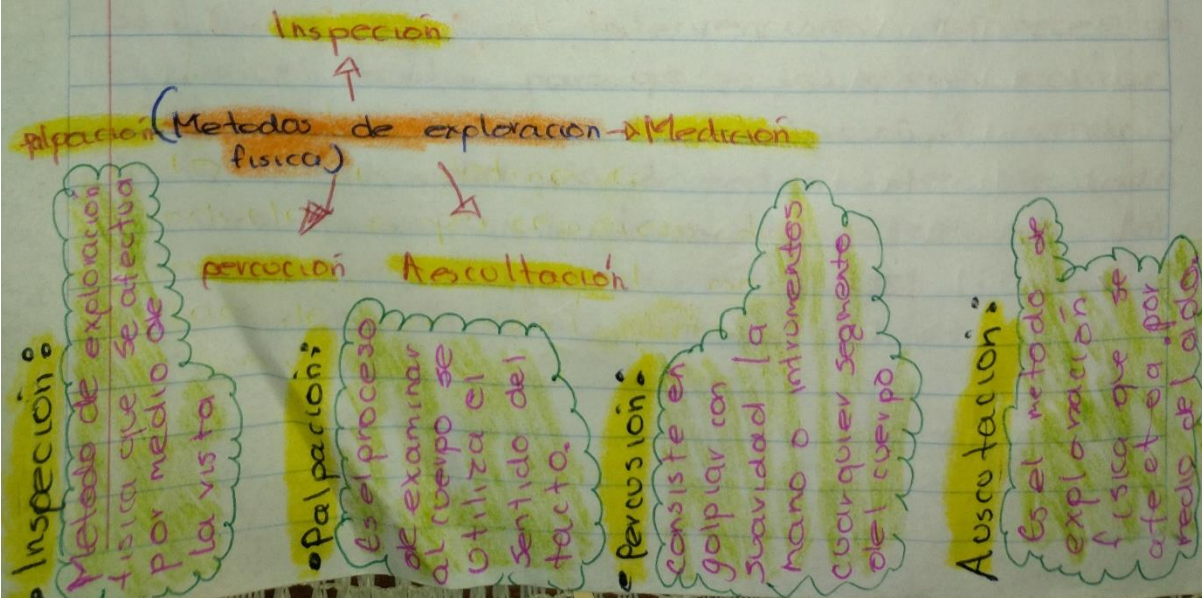 Inspeción
palpación
(Metodos de exploracion
fisica)
Medición
percución
Aescultación
• Inspeción:
Metodo de exploración
fisica que se afectua
por medio de
la vista
• Palpación:
Es el proceso
de examinar
al cuerpo se
utiliza el
sentido del
tacto.
• Percusión:
Consiste en
golpiar con
suavidad la
mano o intromentos
cuarquier segmento
del cuerpo
Auscutación:
Es el metodo de
explorxación
fisica que se
afeetea por
medio del oido